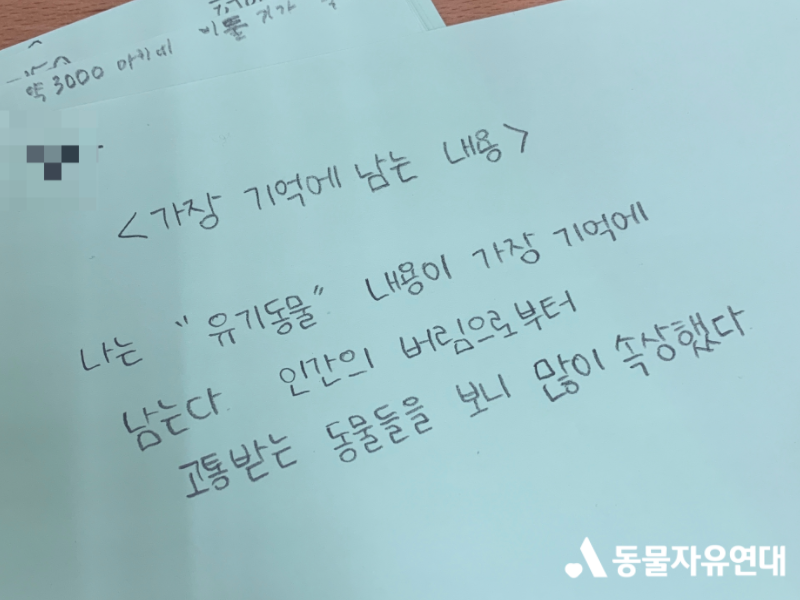 약 3000 마리
<가장 기억에 남는 내용>
나는 "유기동물" 내용이 가장 기억에
남는다. 인간의 버림으로부터
고통받는 동물들을 보니 많이 속상했다
동물자유연대